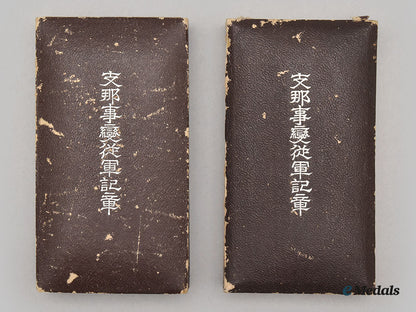 支那事變従軍記章
支那事變従軍記章
eMedals